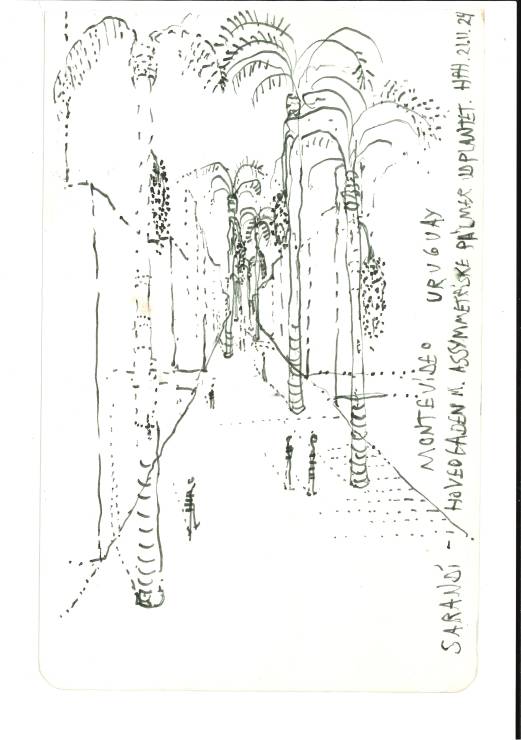 MONTEVIDEO URUGUAY
SARANDÍ - HOVEDGADEN M. ASSYMMETRISKE PALMER UDPLANTET. HHH. 21.11.24